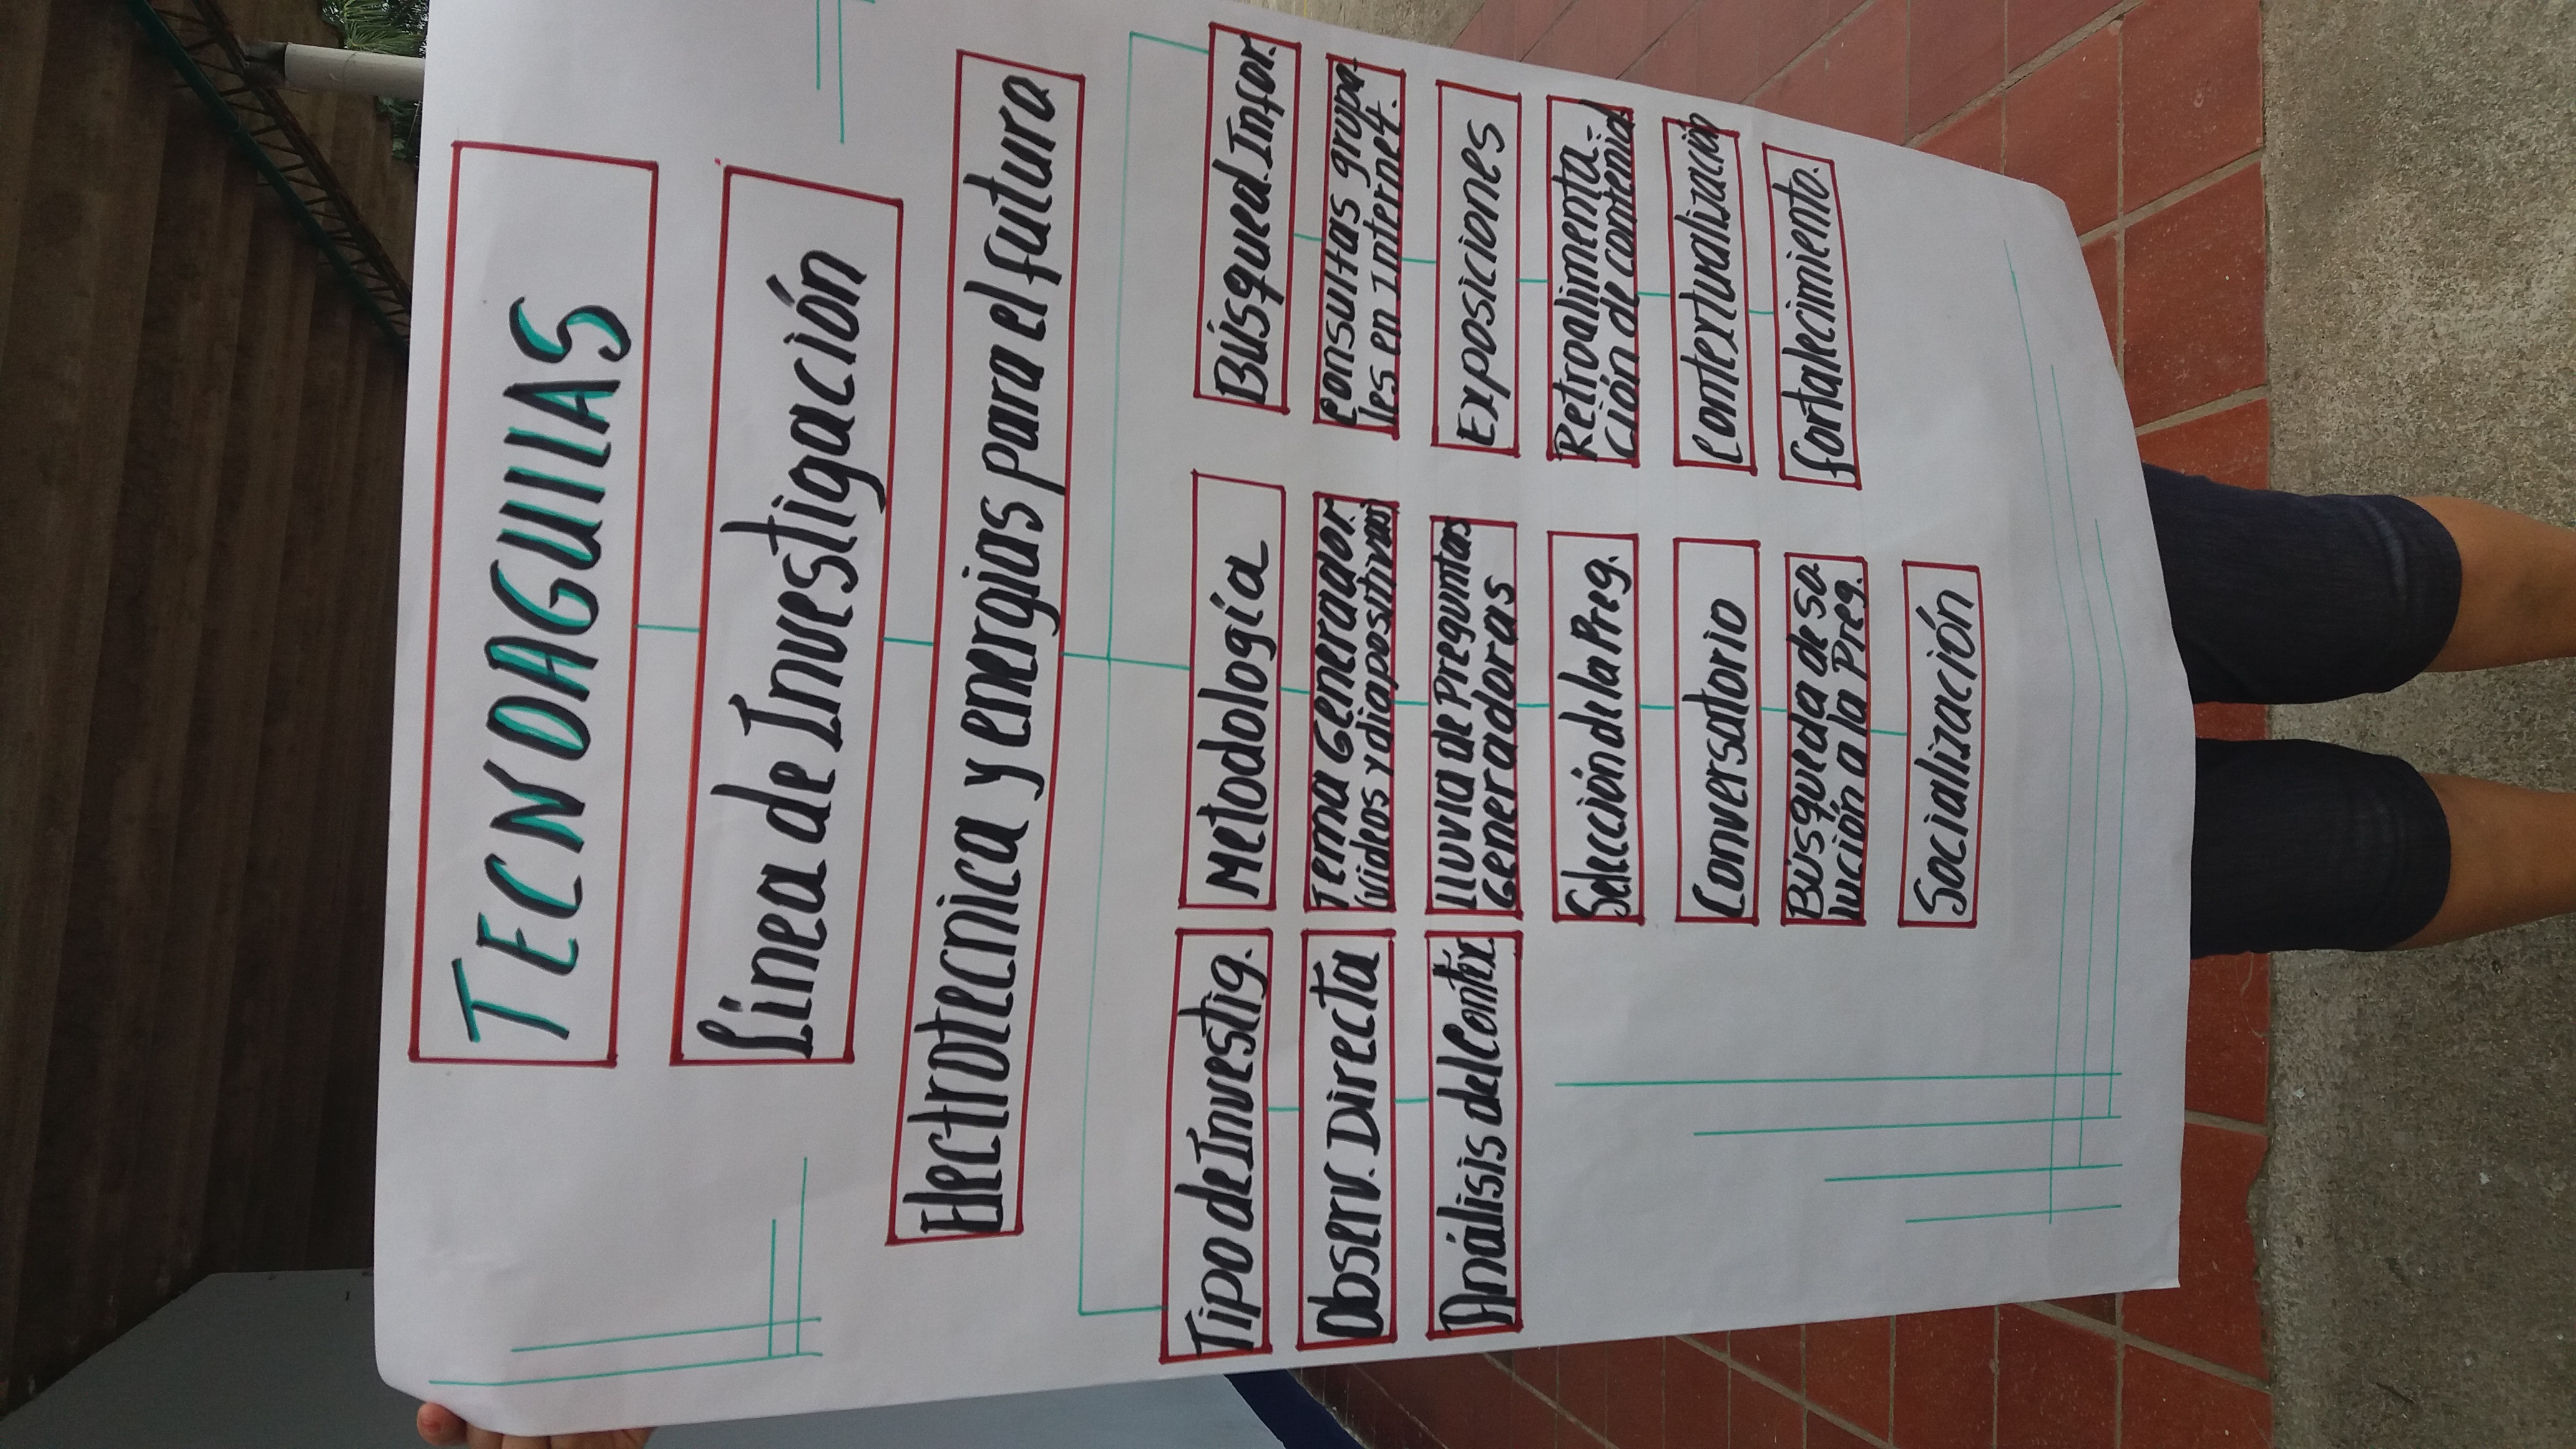 TECNOAGUILAS
Línea de Investigación
Electrotecnica y energias para el futura
Tipo de Investig.
Observ. Directa
Análisis del Contex
Metodología
Tema Generador
(videos y diapositivas)
Lluvia de Preguntas
Generadoras
Selección de la Preg.
Conversatorio
Búsqueda de so
lución a la Preg.
Socialización
Búsqued. Infor.
Consultas grupa-
les en Internet.
Exposiciones
Retroalimenta-
ción de contenid
Contextualización
Fortalecimiento.